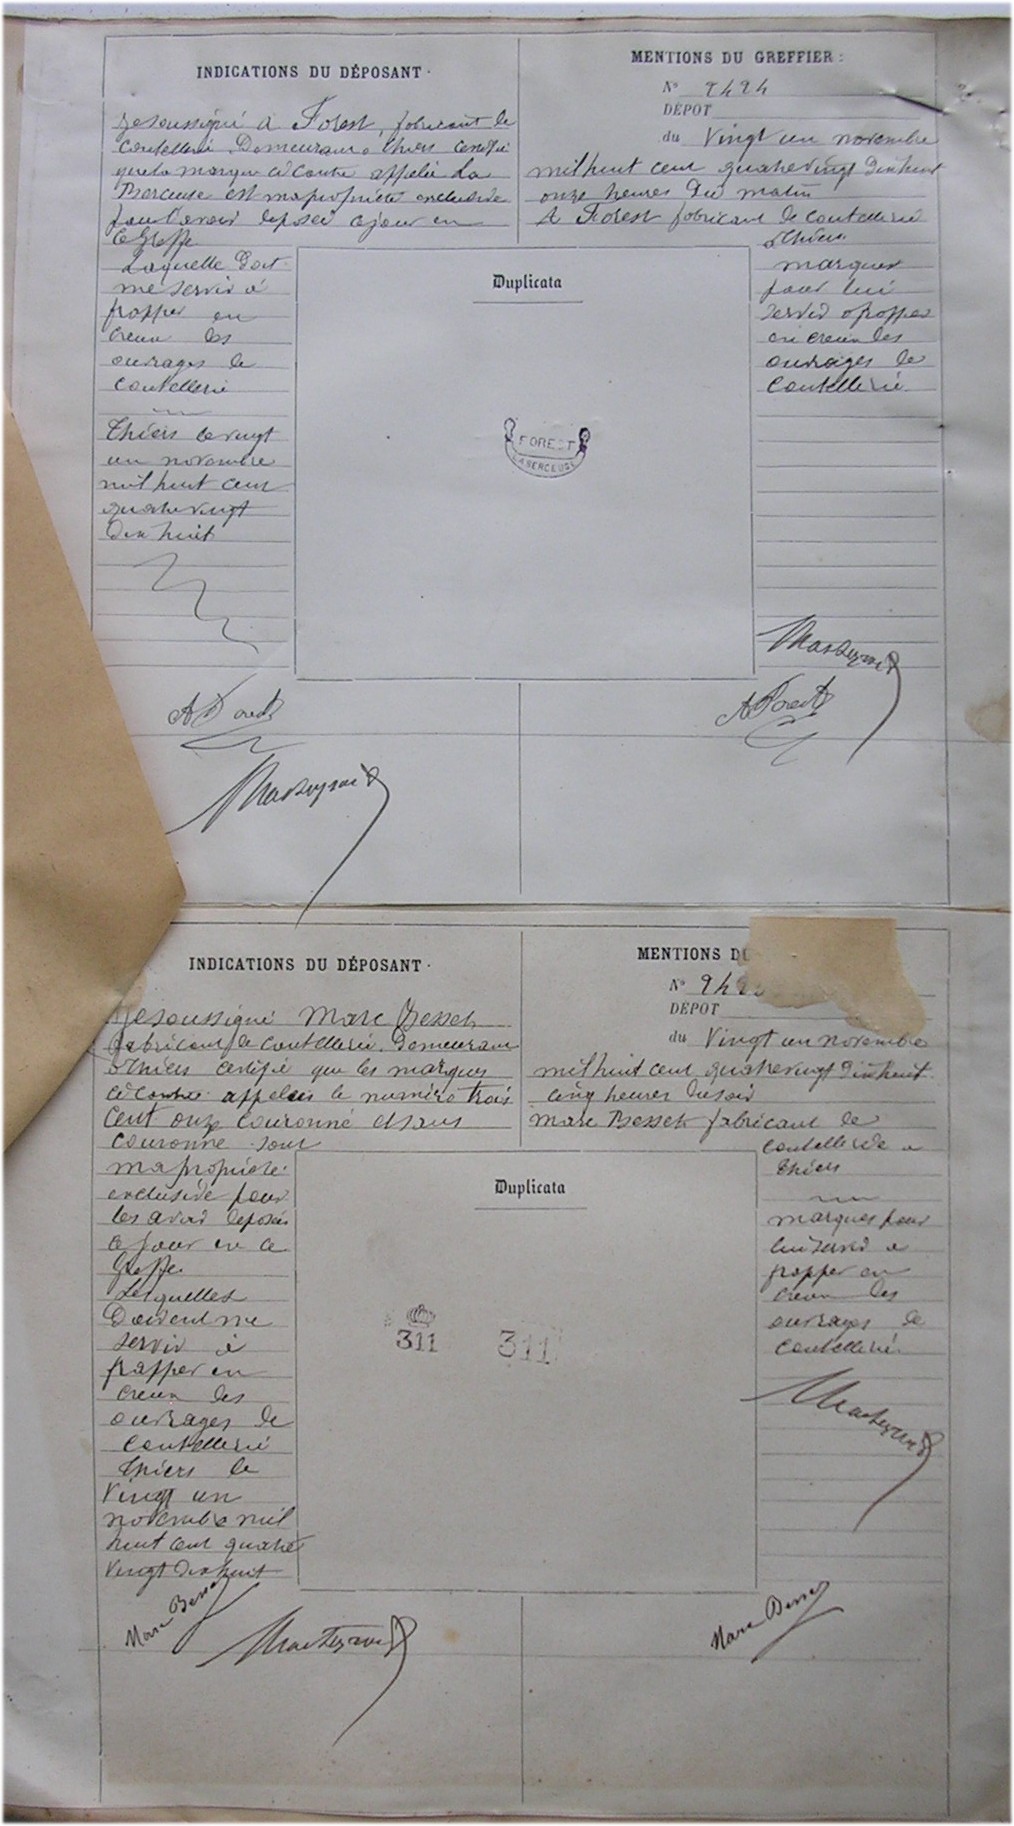 INDICATIONS DU DÉPOSANT
Je soussigné A Forest, fabricant de
Coutellerie Demeurant a Thiers certifie
que la marque ci contre appelée La
Berceuse est ma propriété exclusive
pour l'avoir déposée ce jour en
ce Greffe
Laquelle Doit
me servir à
frapper en
creux les
ouvrages de
Coutellerie
Thiers le vingt
un novembre
mil huit cent
quatre vingt
Dix huit
A Forest
MENTIONS DU GREFFIER :
N° 9494
DÉPOT
du Vingt un novembre
mil huit cent quatre vingt Dix huit
onze heures Du matin
A Forest fabricant de Coutellerie
a Thiers
marques
pour lui
servir a frapper
en creux les
ouvrages de
Coutellerie
A Forest
Duplicata
FOREST
LA BERCEUSE
INDICATIONS DU DÉPOSANT
Je soussigné Marc Besset
fabricant de Coutellerie Demeurant
a Thiers certifie que les marques
ci contre appelées le numéro trois
cent onze Couronné et sans
couronne sont
ma propriété
exclusive pour
les avoir déposées
ce jour en ce
Greffe
Lesquelles
Doivent me
servir à
frapper en
creux les
ouvrages de
Coutellerie
Thiers le
Vingt un
novembre mil
huit cent quatre
vingt Dix huit
Marc Besset
MENTIONS DU
N° 949
DÉPOT
du Vingt un novembre
mil huit cent quatre vingt Dix huit
cinq heures du soir
Marc Besset fabricant de
Coutellerie a
Thiers
marques pour
lui servir a
frapper en
creux les
ouvrages de
Coutellerie
Marc Besset
Duplicata
311 311